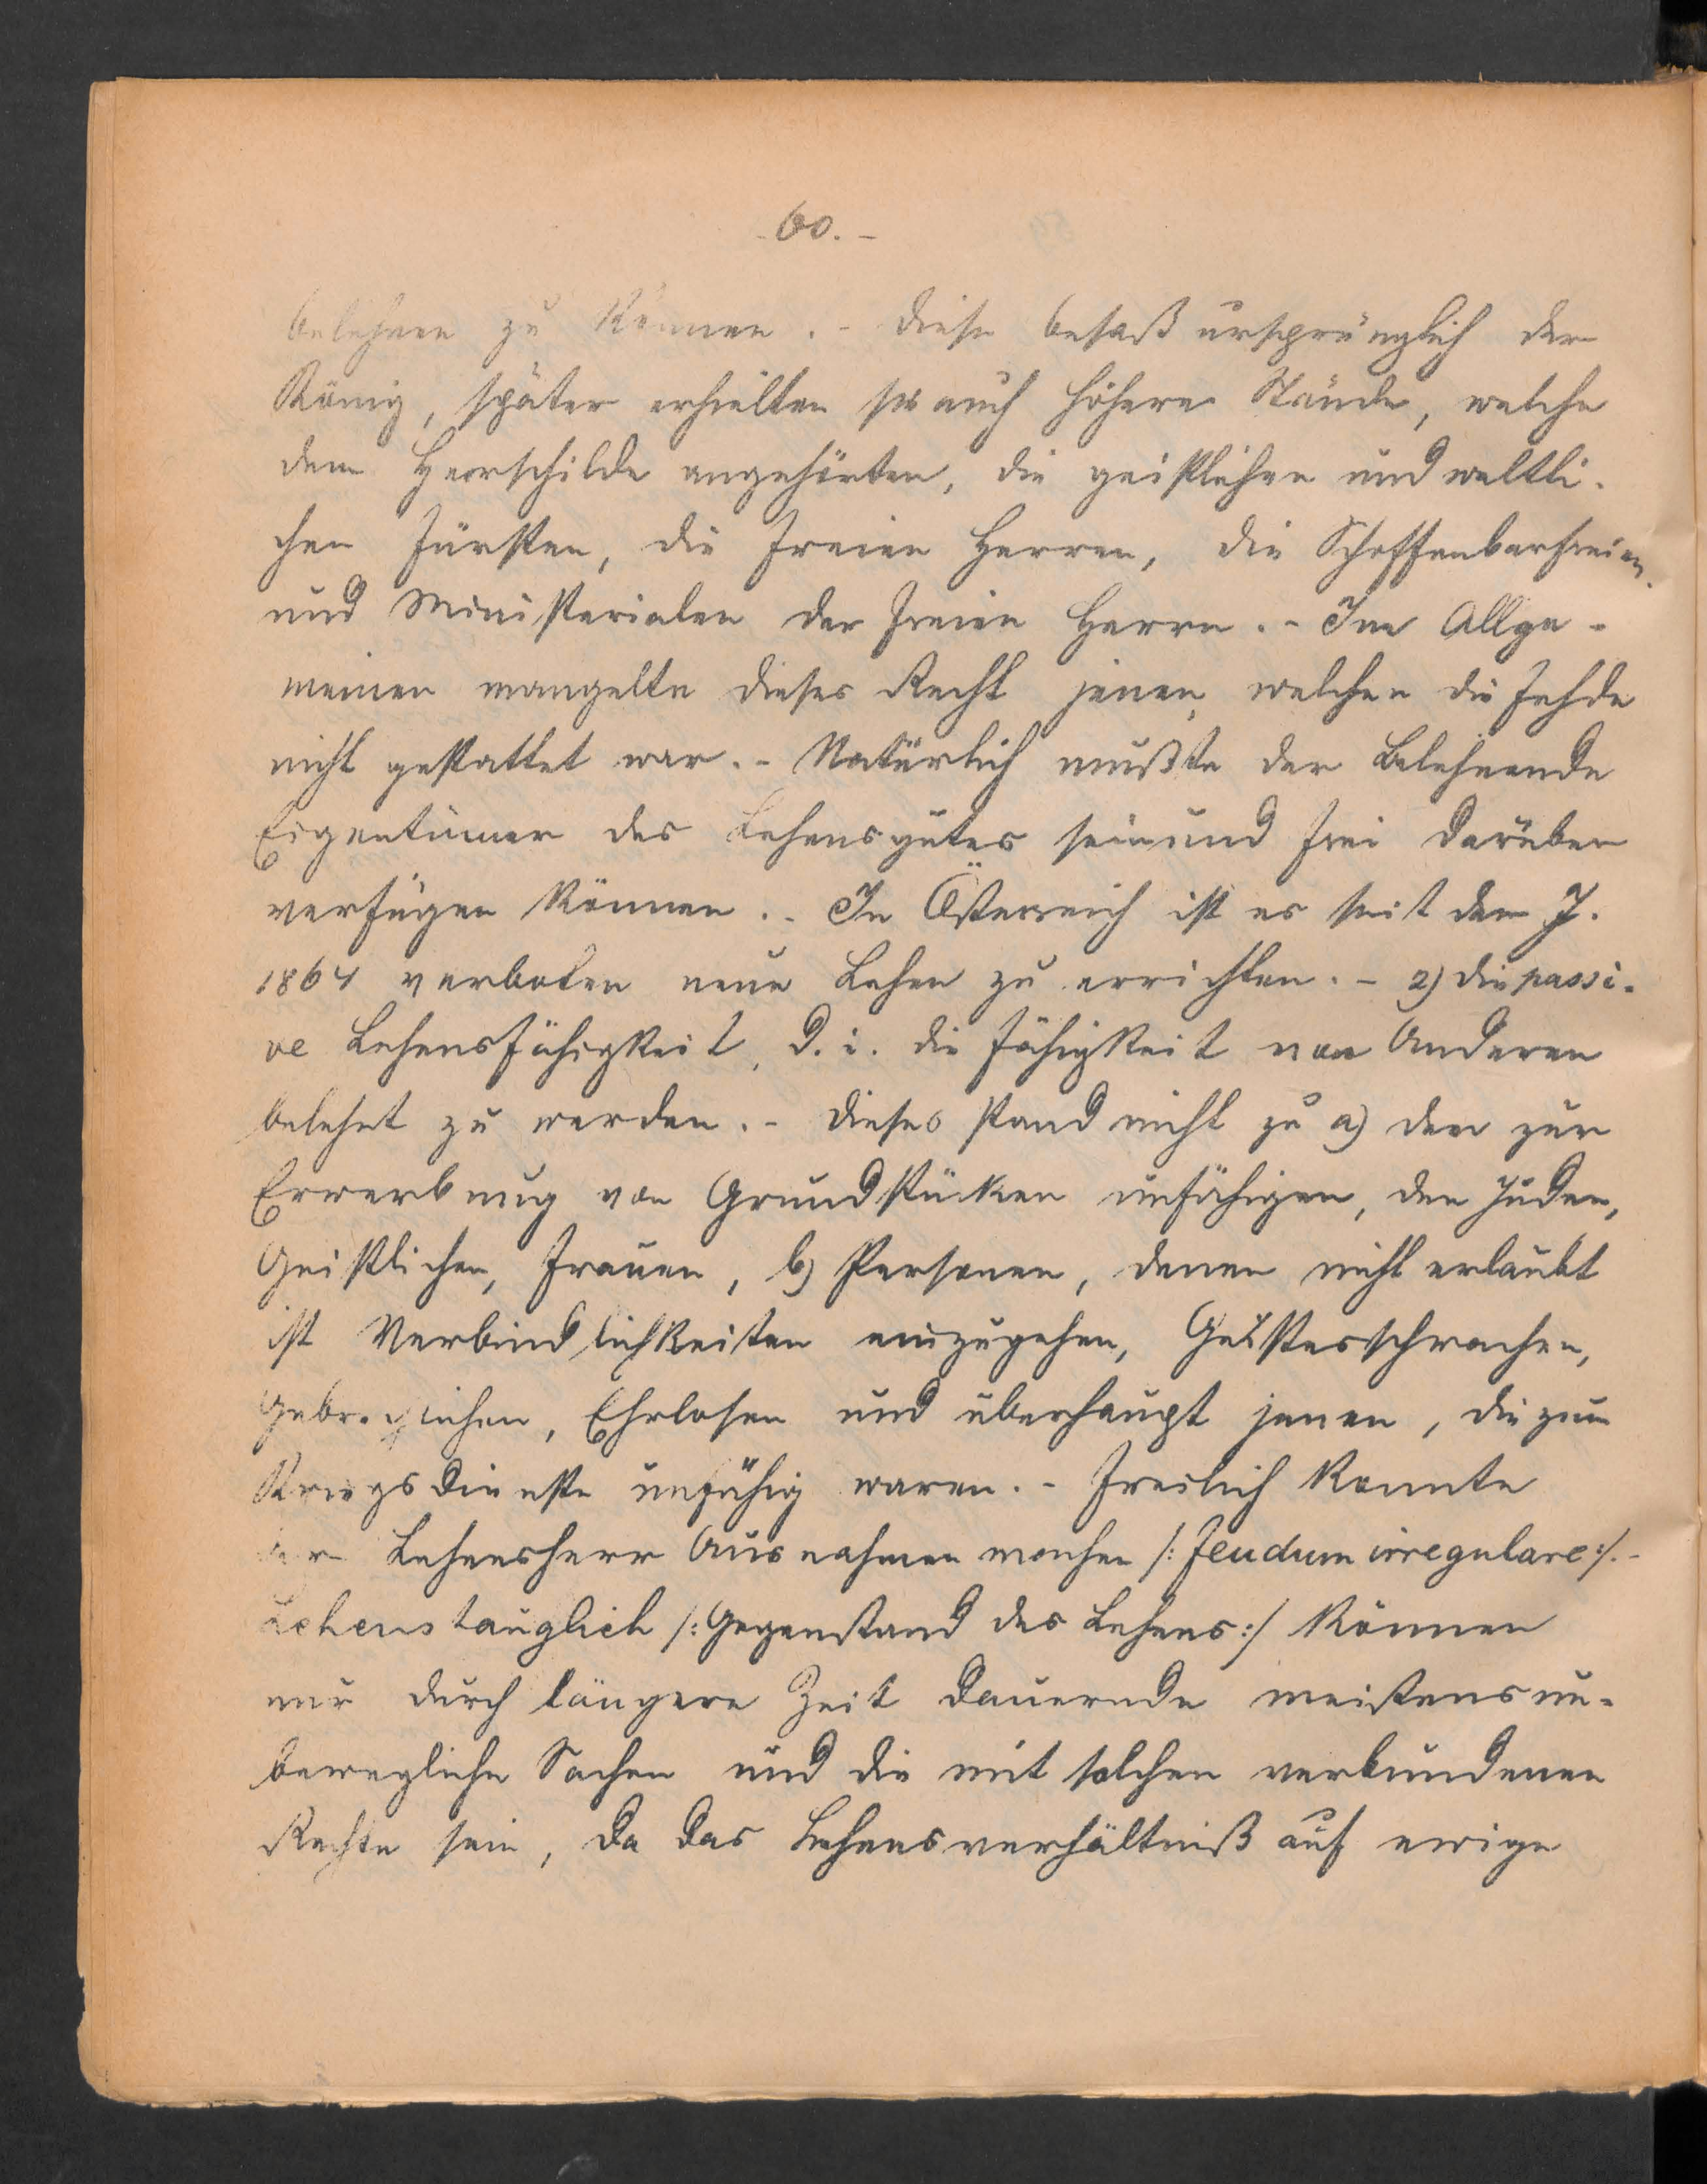 - 60. -
belehnen zu können. - Diese besaß ursprünglich der
König, später erhielten sie auch höhere Stände, welche
dem Heerschilde angehörten, die geistlichen und weltli-
chen Fürsten, die freien Herren, die Schoffenbarfreien
und Ministerialen der freien Herrn. - Im Allge-
meinen mangelte dieses Recht jenen, welchen die Fehde
nicht gestattet war. - Natürlich mußte der Belehnende
Eigentümer des Lehensgutes sein und frei darüber
verfügen können. - In Österreich ist es seit dem J.
1864 verboten neue Lehen zu errichten. - 2) die passi-
ve Lehensfähigkeit, d. i. die Fähigkeit von Anderen
belehnt zu werden. - Dieses stand nicht zu a) den zur
Erwerbung von Grundstücken unfähigen, den Juden,
Geistlichen, Frauen, b) Personen, denen nicht erlaubt
ist Verbindlichkeiten einzugehen, Geistesschwachen,
Gebrechlichen, Ehrlosen und überhaupt jenen, die zum
Kriegsdienste unfähig waren. - Freilich konnte
der Lehensherr Ausnahmen machen /: feudum irregulare :/. -
Lehenstauglich /: Gegenstand des Lehens :/ können
nur durch längere Zeit dauernde meistens un-
bewegliche Sachen und die mit solchen verbundenen
Rechte sein, da das Lehensverhältniß auf ewige